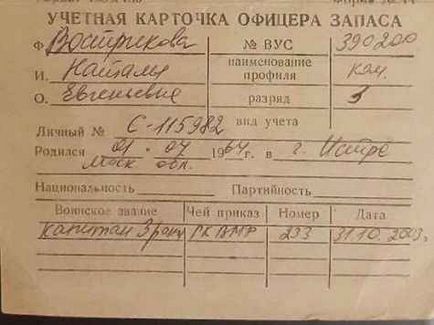 УЧЕТНАЯ КАРТОЧКА ОФИЦЕРА ЗАПАСА
Ф. Вострикова № ВУС 390200
И. Наталия наименование профиля ком.
О. Евгеньевна разряд 3
Личный № С-115982 вид учета
Родился 21 · 04 1964 г. в г. Истре
Моск обл.
Национальность Партийность
Воинское звание Чей приказ Номер Дата
капитан 3 ранга 233 31.10.2003г